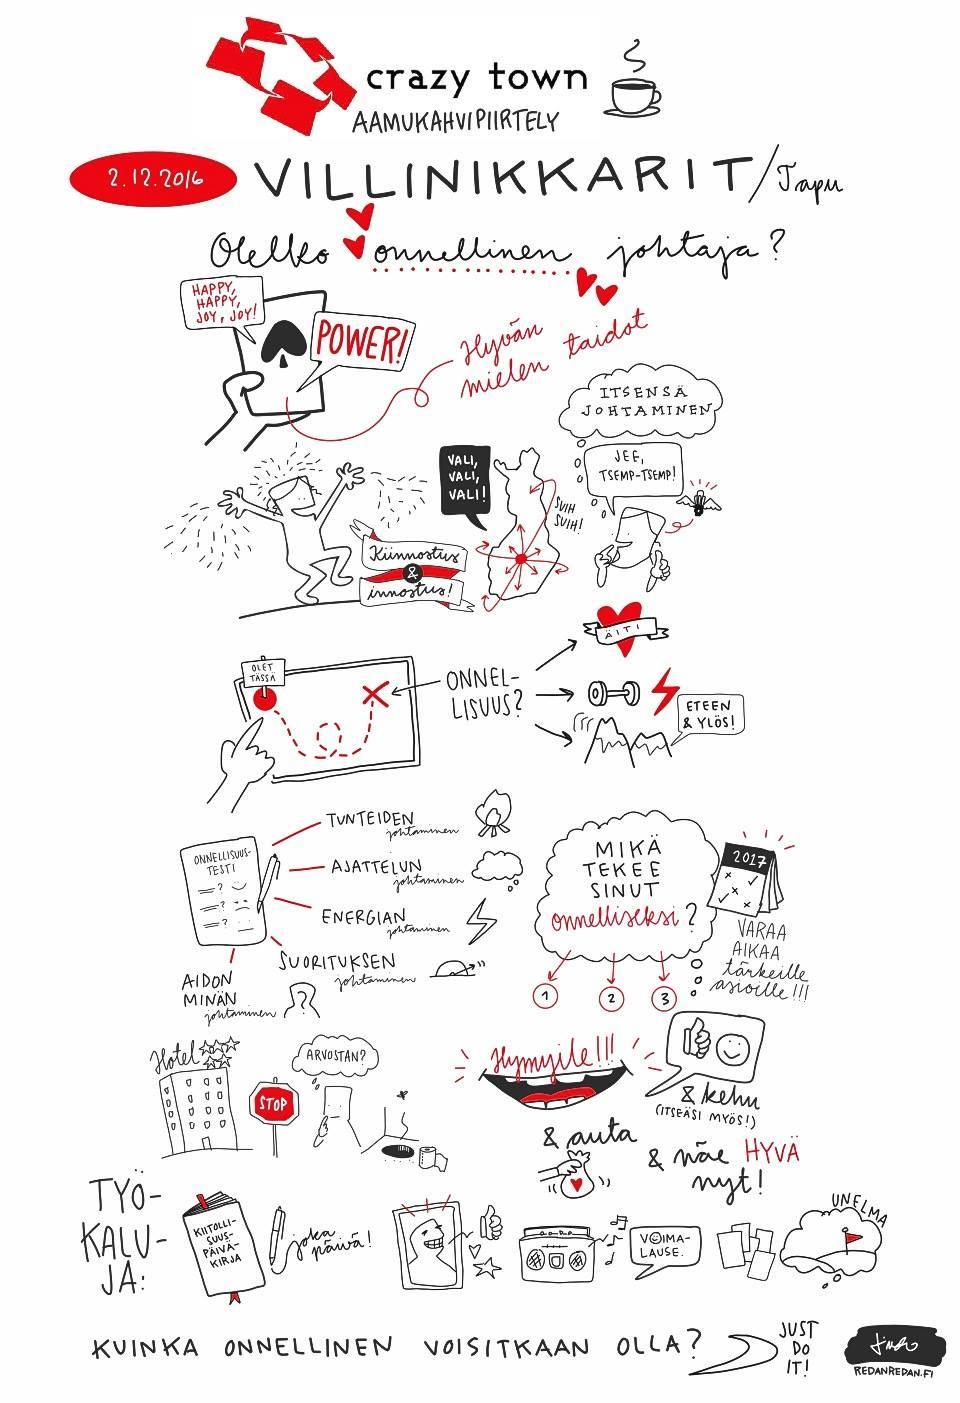 crazy town
AAMUKAHVIPIIRTELY
2.12.2016
VILLINIKKARIT/Tapu
Oletko onnellinen johtaja?
HAPPY,
HAPPY,
JOY, JOY!
POWER!
Hyvän
mielen taidot
ITSENSÄ
JOHTAMINEN
JEE,
TSEMP-TSEMP!
VALI,
VALI,
VALI!
SUIH
SUIH!
Kiinnostus
&
innostus!
ÄITI
OLET
TÄSSÄ
ONNEL-
LISUUS?
ETEEN
& YLÖS!
ONNELLISUUS-
TESTI
=?
=?
=?
TUNTEIDEN
johtaminen
AJATTELUN
johtaminen
ENERGIAN
johtaminen
SUORITUKSEN
johtaminen
AIDON
MINÄN
johtaminen
?
MIKÄ
TEKEE
SINUT
onnelliseksi?
1
2
3
2017
VARAA
AIKAA
tärkeille
asioille!!!
Hotel
STOP
ARVOSTAN?
Hymyile!!!
& kehu
(ITSEÄSI MYÖS!)
& auta
& näe HYVÄ
nyt!
TYÖ-
KALU-
JA:
KIITOLLI-
SUUS-
PÄIVÄ-
KIRJA
joka
päivä!
VOIMA-
LAUSE.
UNELMA
KUINKA ONNELLINEN VOISITKAAN OLLA?
JUST
DO
IT!
REDANREDAN.FI